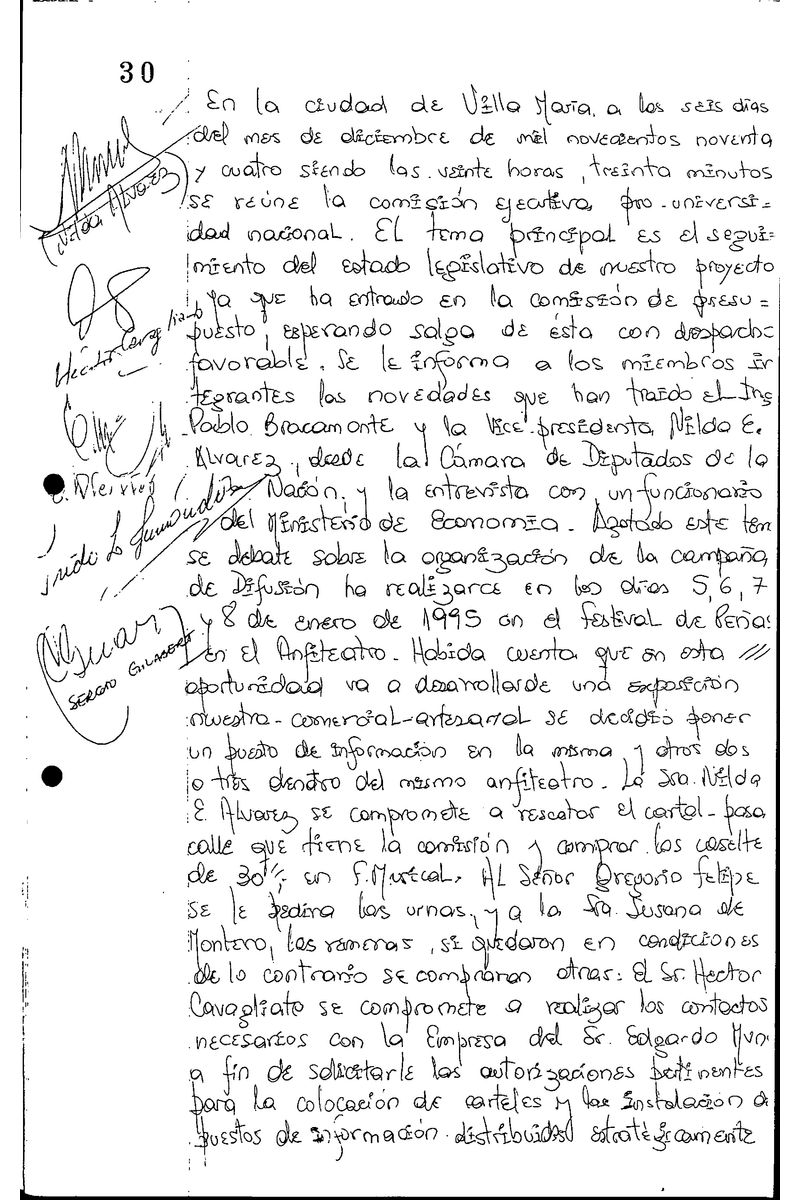 30
En la ciudad de Villa María, a los seis días
del mes de diciembre de mil novecientos noventa
y cuatro siendo las veinte horas, treinta minutos
se reúne la comisión ejecutiva pro-universi-
dad nacional. El tema principal es el segui-
miento del estado legislativo de nuestro proyecto
ya que ha entrado en la comisión de presu=
puesto, esperando salga de ésta con despacho
favorable. Se le informa a los miembros in
tegrantes las novedades que han traído el Ing
Pablo Bracamonte y la Vice-presidenta, Nilda E.
Alvarez, desde la Cámara de Diputados de la
Nación, y la entrevista con un funcionario
del Ministerio de Economía. Agotado este tem
se debate sobre la organización de la campaña
de Difusión ha realizarce en los días 5, 6, 7
y 8 de enero de 1995 en el festival de Peñas
en el Anfiteatro. Habida cuenta que en esta ///
oportunidad va a desarrollarde una exposición
muestra-comercial-artesanal se decidió poner
un puesto de información en la misma y otros dos
o tres dentro del mismo anfiteatro. La Sra. Nilda
E. Alvarez se compromete a rescatar el cartel-pasa
calle que tiene la comisión y comprar los caselte
de 30'', en F. Musical. Al Señor Gregorio Felipe
se le pedira las urnas, y a la Sra. Susana de
Montero, las remeras, si quedaron en condiciones
de lo contrario se compraran otras: El Sr. Hector
Cavagliato se compromete a realizar los contactos
necesarios con la Empresa del Sr. Edgardo Mun
a fin de solicitarle las autorizaciones petinentes
para la colocación de carteles y las instalación d
puestos de información distribuidos estratégicamente
Nilda Alvarez
Hector Cavagliato
SERGIO GILABERT